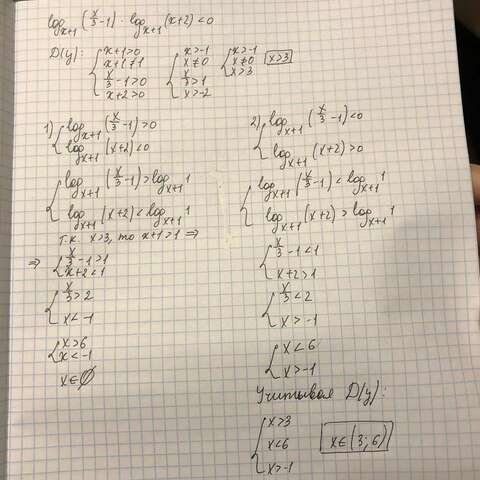 log_{x+1}(x/3-1)·log_{x+1}(x+2)<0
D(y): { x+1>0 { x>-1 { x>-1
x+1≠1 x≠0 x≠0 x>3
x/3-1>0 x/3>1 x>3
x+2>0 x>-2
1) { log_{x+1}(x/3-1)>0
log_{x+1}(x+2)<0
{ log_{x+1}(x/3-1)>log_{x+1}1
log_{x+1}(x+2)<log_{x+1}1
т.к. x>3, то x+1>1 ⇒
⇒ { x/3-1>1
x+2<1
{ x/3>2
x<-1
{ x>6
x<-1
x∈∅
2) { log_{x+1}(x/3-1)<0
log_{x+1}(x+2)>0
{ log_{x+1}(x/3-1)<log_{x+1}1
log_{x+1}(x+2)>log_{x+1}1
{ x/3-1<1
x+2>1
{ x/3<2
x>-1
{ x<6
x>-1
Учитывая D(y):
{ x>3
x<6 x∈(3;6)
x>-1